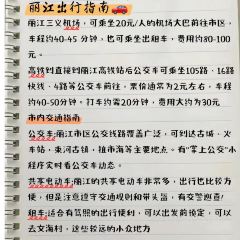 丽江出行指南
丽江三义机场，可乘坐20元/人的机场大巴前往市区，
车程约40-45分钟，也可乘坐出租车，费用约80-100
元。
高铁到直接到丽江高铁站后公交车可乘坐105路、16路
快线、4路等公交车前往，票价通常为2元左右，车程
约40-50分钟。打车约需20分钟，费用大约为30元
市内交通指南
公交车：丽江市区公交线路覆盖广泛，可到达古城、火
车站、束河古镇、拉市海等主要地点。有“掌上公交”小
程序实时看公交车动态。
共享电动车：丽江的共享电动车非常多，出行也比较方
便，但是注意遵守交通规则和带头盔，有交警巡查！
租车：适合有驾照的出行便利，可以出发前预定，可以
去文海村，这些较远的小众地方